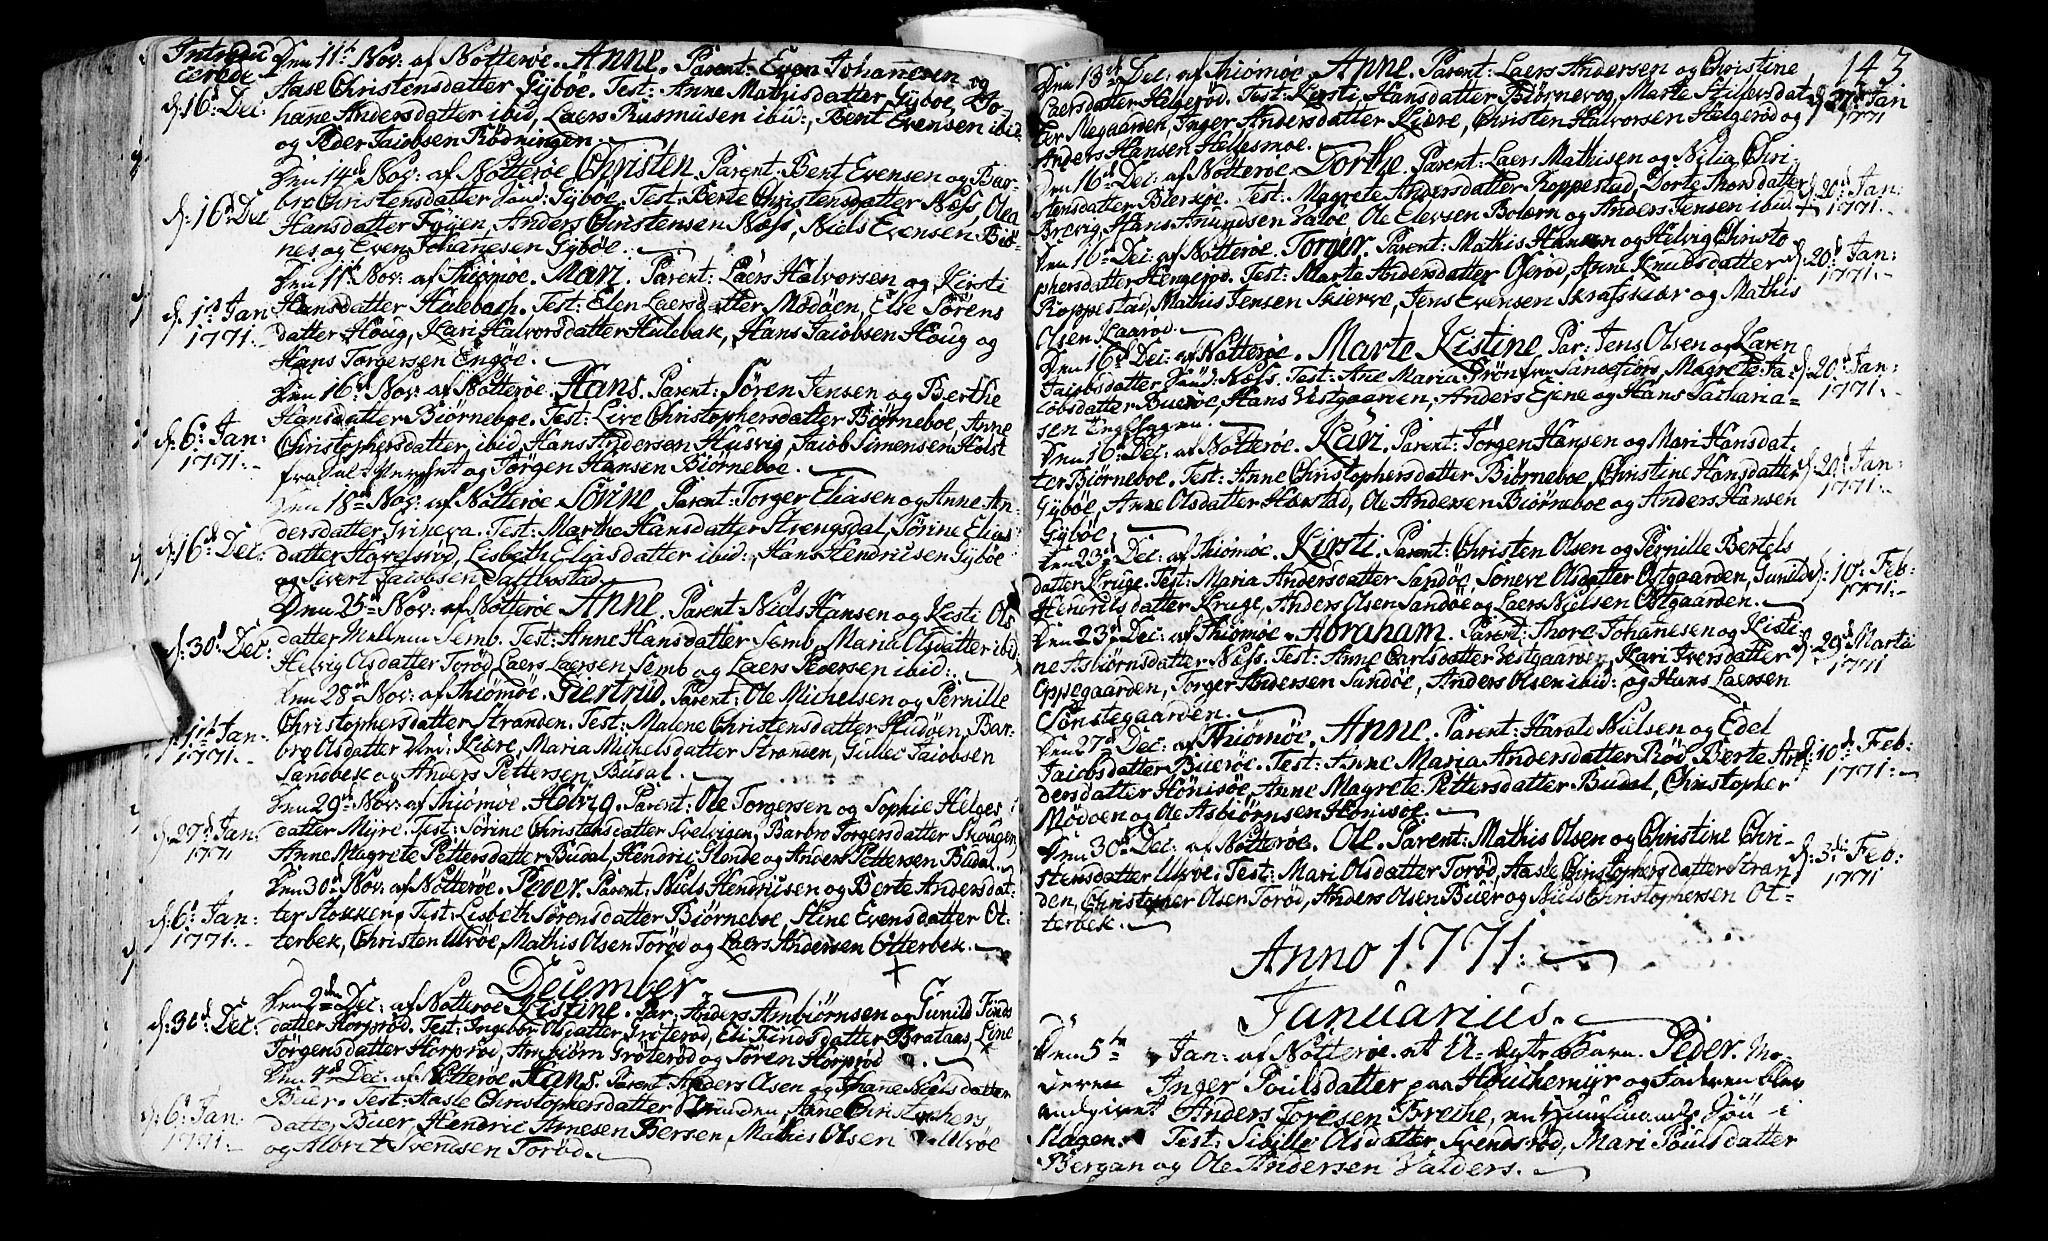 Introdu
cerede
Den 11te Nov: af Nötteröe. Anne. Parent: Even Johannesen og
Aase Christensdatter Gÿböe. Test: Anne Mathisdatter Gÿböe, Jo-
d: 16d Dec:
hanne Andersdatter ibid, Laers Rusmusen ibid:, Bent Evensen ibid:
og Peder Jacobsen Rödningen.
Den 14d Nov: af Nötteröe Christen. Parent: Bent Evensen og Bar-
bro Christensdatter Gÿböe. Test: Berte Christensdatter Næss, Olea
d: 16d Dec
Hansdatter Föÿen, Anders Christensen Næss, Niels Evensen Biör-
nes og Even Johannesen Gÿböe.
Den 11te Nov: af Thiömöe. Mari. Parent: Laers Halvorsen og Kirsti
Hansdatter Hulebach. Test: Elen Laersdatter Mödöen, Else Sörens
d: 1te Jan
1771.
datter Houg, Kari Halvorsdatter Hulebak, Hans Jacobsen Houg og
Hans Torgersen Engöe.
Den 16d Nov: af Nötteröe. Hans. Parent: Sören Jensen og Berthe
Hansdatter Biörneboe. Test: Live Christophersdatter Biörneboe, Anne
d: 6t Jan:
1771.
Christophersdatter ibid, Hans Andersen Husvig, Jacob Simensen Holst
fra og Jörgen Hansen Biörneboe.
Den 18de Nov: af Nötteröe Sörine Parent: Torger Eliasen og Anne An-
dersdatter Test: Marthe Hansdatter Strengsdal, Sörine Elias
d: 16d Dec:
datter Havelsröd, Lisbeth Eliasdatter ibid:, Hans Hendricksen Gÿböe
og Sivert Jacobsen
Den 25de Nov: af Nötteröe Anne. Parent: Niels Hansen og Kisti Ols
datter Mellem Semb. Test: Anne Hansdatter Semb, Maria Olsdatter ibid
d: 30d Dec:
Helvig Olsdatter Toröd, Laers Laersen Semb og Laers Pedersen ibid:
Den 28de Nov: af Thiömöe. Giertrud. Parent: Ole Michelsen og Pernille
Christophersdatter Stranden. Test: Malene Christensdatter Hudöen, Bar-
d: 1te Jan
1771.
bro Olsdatter Kiære, Maria Michelsdatter Stranden, Gullec Jacobsen
Sandbek og Anders Pettersen Budal.
Den 29d Nov: af Thiömöe. Helvig. Parent: Ole Torgersen og Sophie Helges
datter Mÿre. Test: Sörine Christensdatter Svelvigen, Barbro Torgersdatter Skougen
d: 27d Jan:
1771
Anne Magrete Pettersdatter Budal, Hendric og Anders Pettersen Budal.
Den 30d Nov: af Nötteröe. Peder. Parent: Niels Hendricsen og Berte Andersdat-
d: 6t Jan:
1771.
ter Stokken. Test: Lisbeth Sörensdatter Biörneboe, Stine Evensdatter Ot-
terbek, Christen Ulvöe, Mathis Olsen Toröd og Laers Andersen Otterbek.
December
Den 2den Dec: af Nötteröe Kistine. Par: Anders Ambiörnsen og Gunild Finds
d: 30d Dec:
datter Horpröd. Test: Ingebor Olsdatter Gröteröd, Eli Findsdatter Brataas, Line
Jörgensdatter Horpröd, Ambiörn Gröteröd og Sören Horpröd.
Den 4d Dec: af Nötteröe. Hans. Parent: Anders Olsen og Johane Nielsdatter
Buer. Test: Aasle Christophersdatter Stranden, Anne Christophers
d: 6t Jan:
1771.
datter Buer, Hendric Arnesen Bersen, Mathis Olsen Ulvöe
og Albret Svendsen Toröd.
143
Den 13d Dec: af Thiömöe. Anne. Parent: Laers Andersen og Christine
Laersdatter Helgeröd. Test: Kirsti Hansdatter Biörnevog, Marte
d: 27d Jan
1771
ter Megaarden, Inger Andersdatter Kiære, Christen Halvorsen Helgeröd og
Anders Hansen Hellesmoe.
Den 16d Dec: af Nötteröe. Dorthe. Parent: Laers Mathisen og Nilia Chri-
stensdatter Test: Magrete Andersdatter Roppestad, Dorte Thorsdatter
d: 20d Jan:
1771.
Brevig, Hans Amundsen Valöe, Ole Elevsen Bolærn og Anders Jensen ibid.
Den 16d Dec: af Nötteröe. Torger. Parent: Mathis Hansen og Helvig Christo
phersdatter Hengeröd. Test: Marta Andersdatter Gieröd, Anne Knudsdatter
d: 20d Jan:
1771.
Roppestad, Mathis Jensen Skierve, Jens Evensen Skrafskiær og Mathis
Olsen Kaaröd.
Den 16d Dec: af Nötteröe. Marte Kistine. Par: Jens Olsen og Karen
Jacobsdatter Næss. Test: Ane Maria Grön fra Sandefiord, Magrete Ja-
d: 20d Jan:
1771.
cobsdatter Bueröe, Hans Vestgaarden, Anders Eiene og Hans Sacharia-
sen Enghaugen.
Den 16d Dec: af Nötteröe. Kari. Parent: Jörgen Hansen og Mari Hansdat-
ter Biörneboe. Test: Anne Christophersdatter Biörneboe, Christine Hansdatter
d: 20d Jan:
1771.
Gÿböe, Anne Olsdatter Harstad, Ole Andersen Biörneboe og Anders Hansen
Gÿböe.
Den 23d Dec: af Thiömöe. Kirsti. Parent: Christen Olsen og Pernille Bertels
datter Kruge. Test: Maria Andersdatter Sandöe, Soneve Olsdatter Östgaarden, Gunild
d: 10d Feb:
1771.
Hendricsdatter Kruge, Anders Olsen Sandöe og Laers Nielsen Östgaarden.
Den 23d Dec: af Thiömöe. Abraham. Parent: Thore Johannesen og Kisti-
ne Asbiörnsdatter Næss. Test: Anne Carlsdatter Vestgaarden, Kari Iversdatter
d: 29d Martii
1771
Oppegaarden, Torger Andersen Sandöe, Anders Olsen ibid: og Hans Laersen
Sönstegaarden.
Den 27d Dec: af Thiömöe. Anne. Parent: Harald Nielsen og Edel
Jacobsdatter Bueröe. Test: Anne Maria Andersdatter Röd, Berte An-
d: 10d Feb:
1771.
dersdatter Hönisöe, Anne Magrete Pettersdatter Budal, Christopher
Mödöen og Ole Asbiörnsen Hönisöe.
Den 30d Dec: af Nötteröe. Ole. Parent: Mathis Olsen og Christine Chri-
stensdatter Ulvöe. Test: Mari Olsdatter Toröd, Aasle Christophersdatter Stran-
d: 3d Feb:
1771
den, Christopher Olsen Toröd, Anders Olsen Buer og Niels Christophersen Ot-
terbek.
Anno 1771.
Januarius.
Den 5te Jan: af Nötteröe. et U-ægte Barn. Peder. Mo-
deren Inger Poulsdatter paa Houchemÿr og Faderen blev
andgivet Anders Toresen Breche, en
Slagen. Test: Sibille Olsdatter Svendsröd, Mari Poulsdatter
Bergan og Ole Andersen Valders.